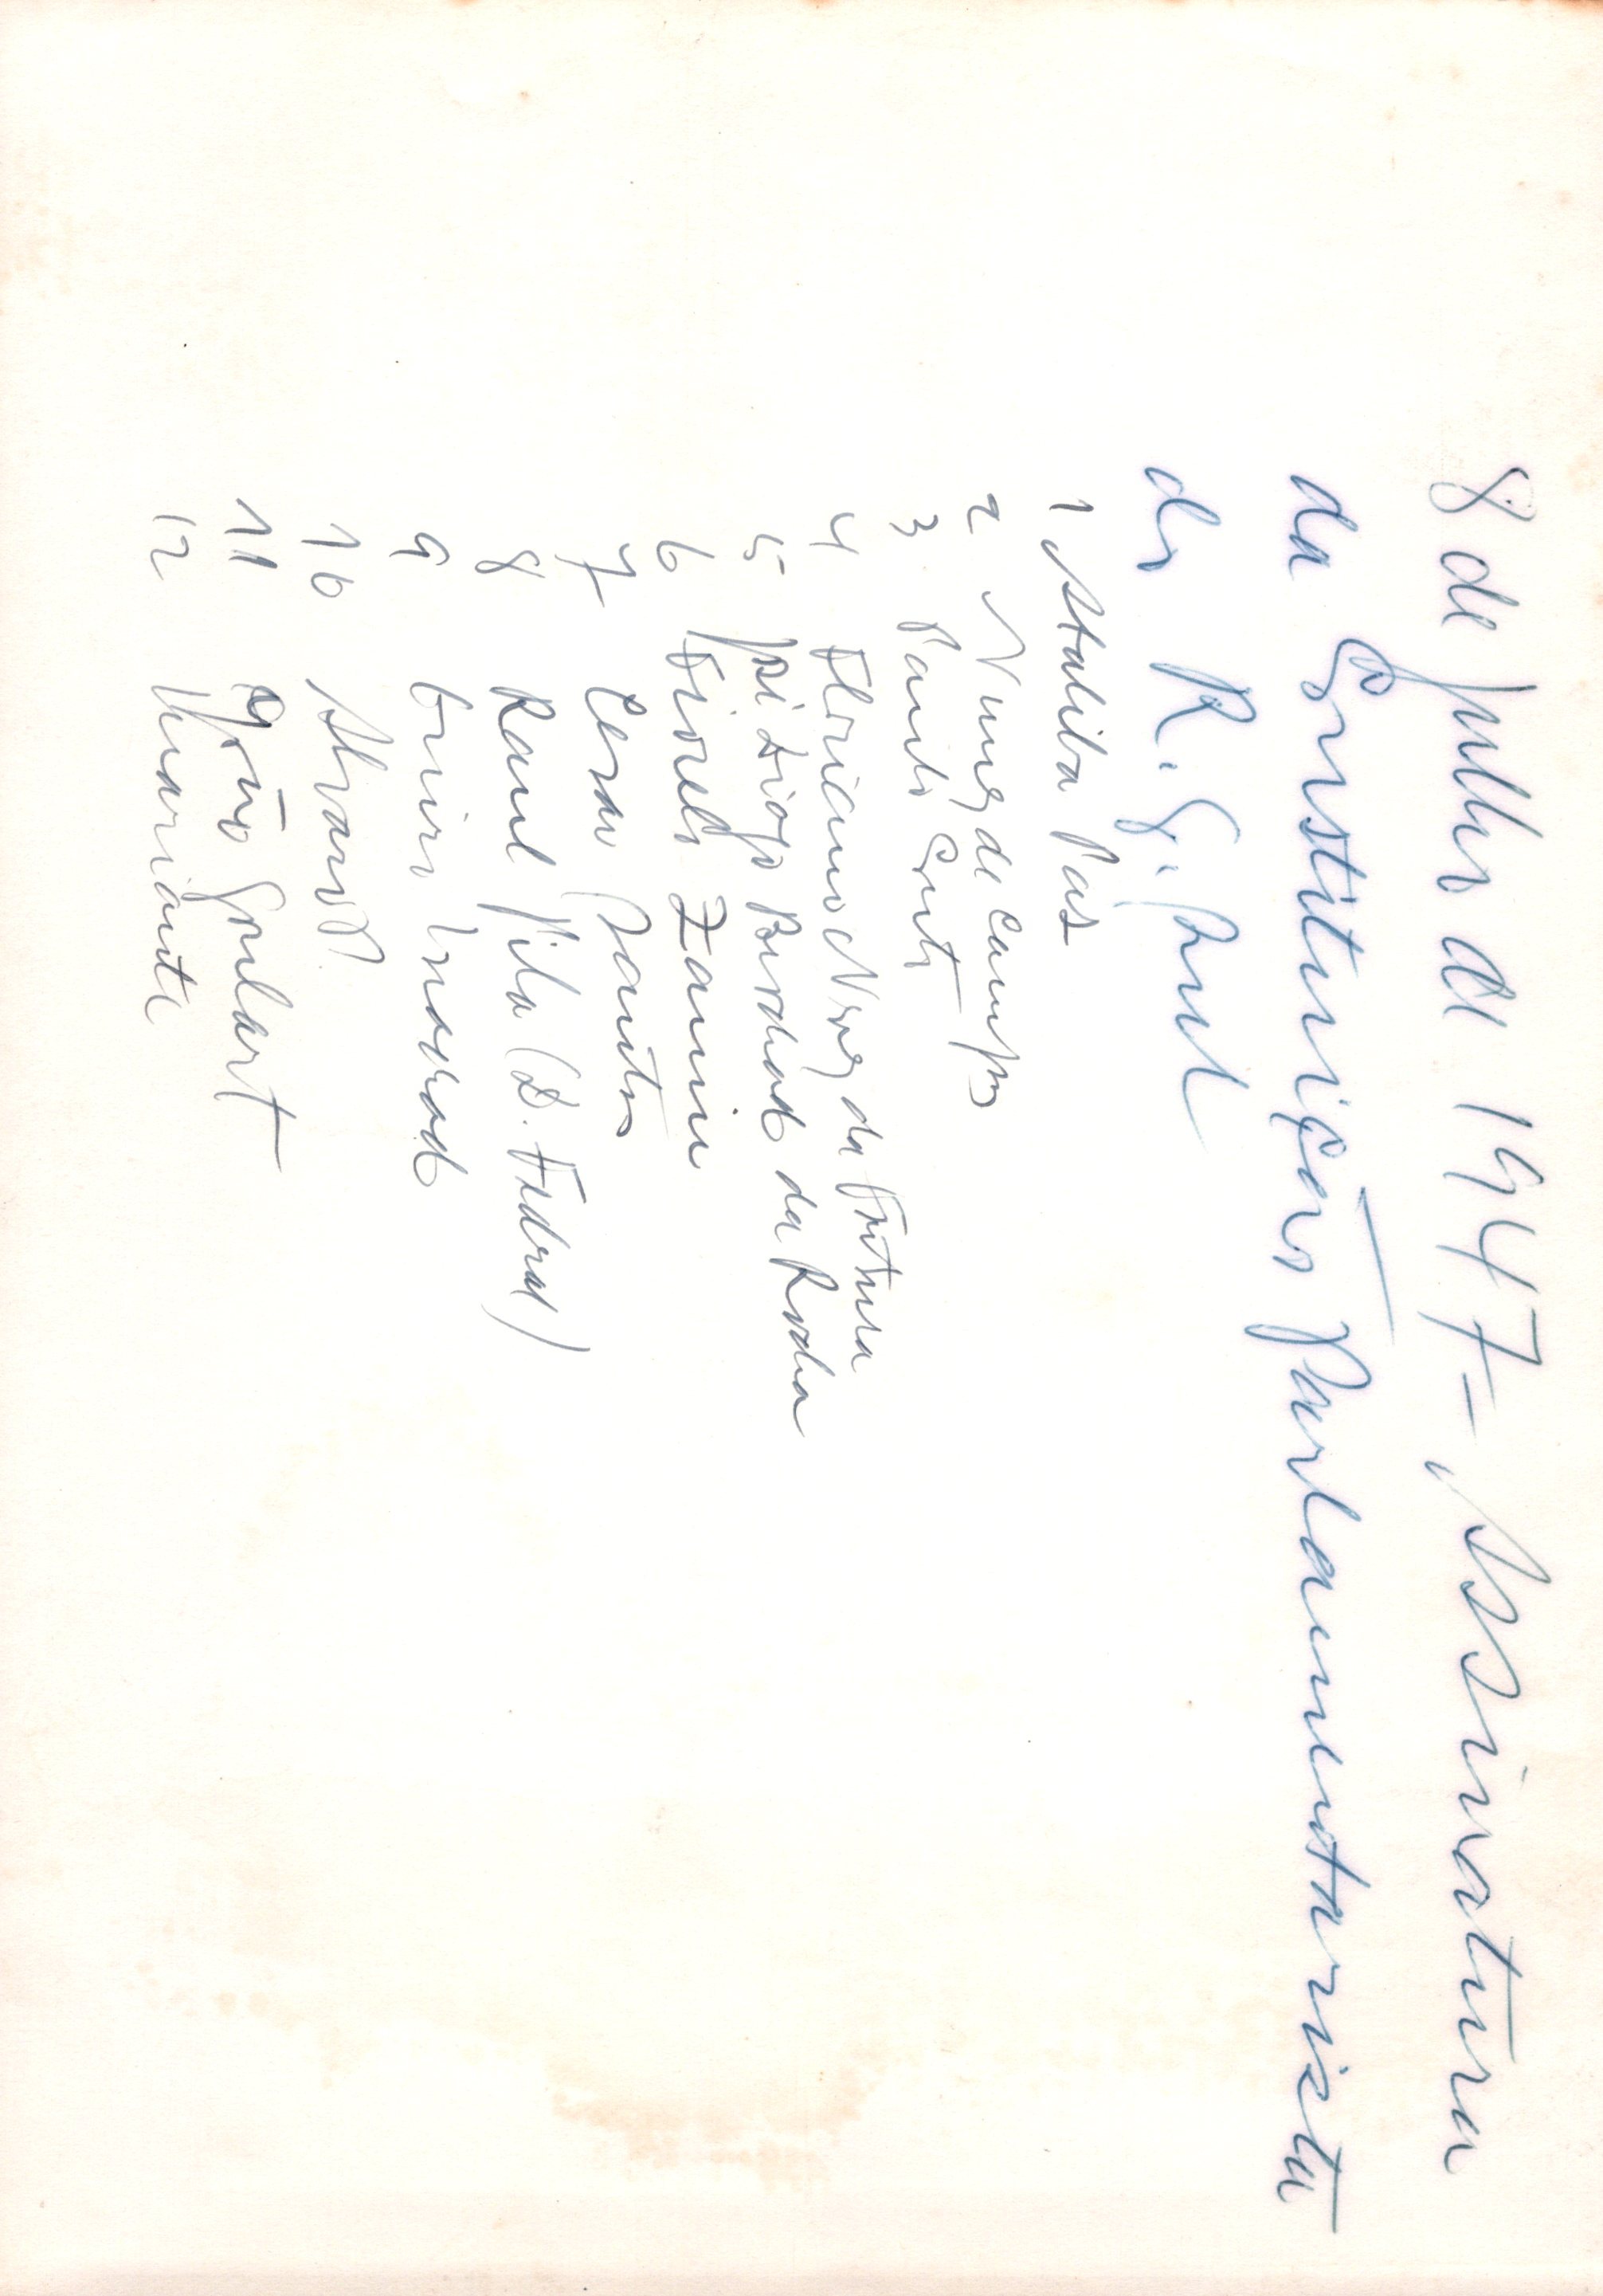 8 de Julho de 1947 - Assinatura
da Constituição Parlamentarista
do R. G. Sul
1 Ataliba Paz
2 Nunes de Campos
3 Paulo Couto
4 Floriano Neves da Fontoura
5 José Diogo Brochado da Rocha
6 Fiorelo Zanin
7 Cesar Santos
8 Raul Pila (D. Federal)
9
10
11 João Goulart
12 Mariante